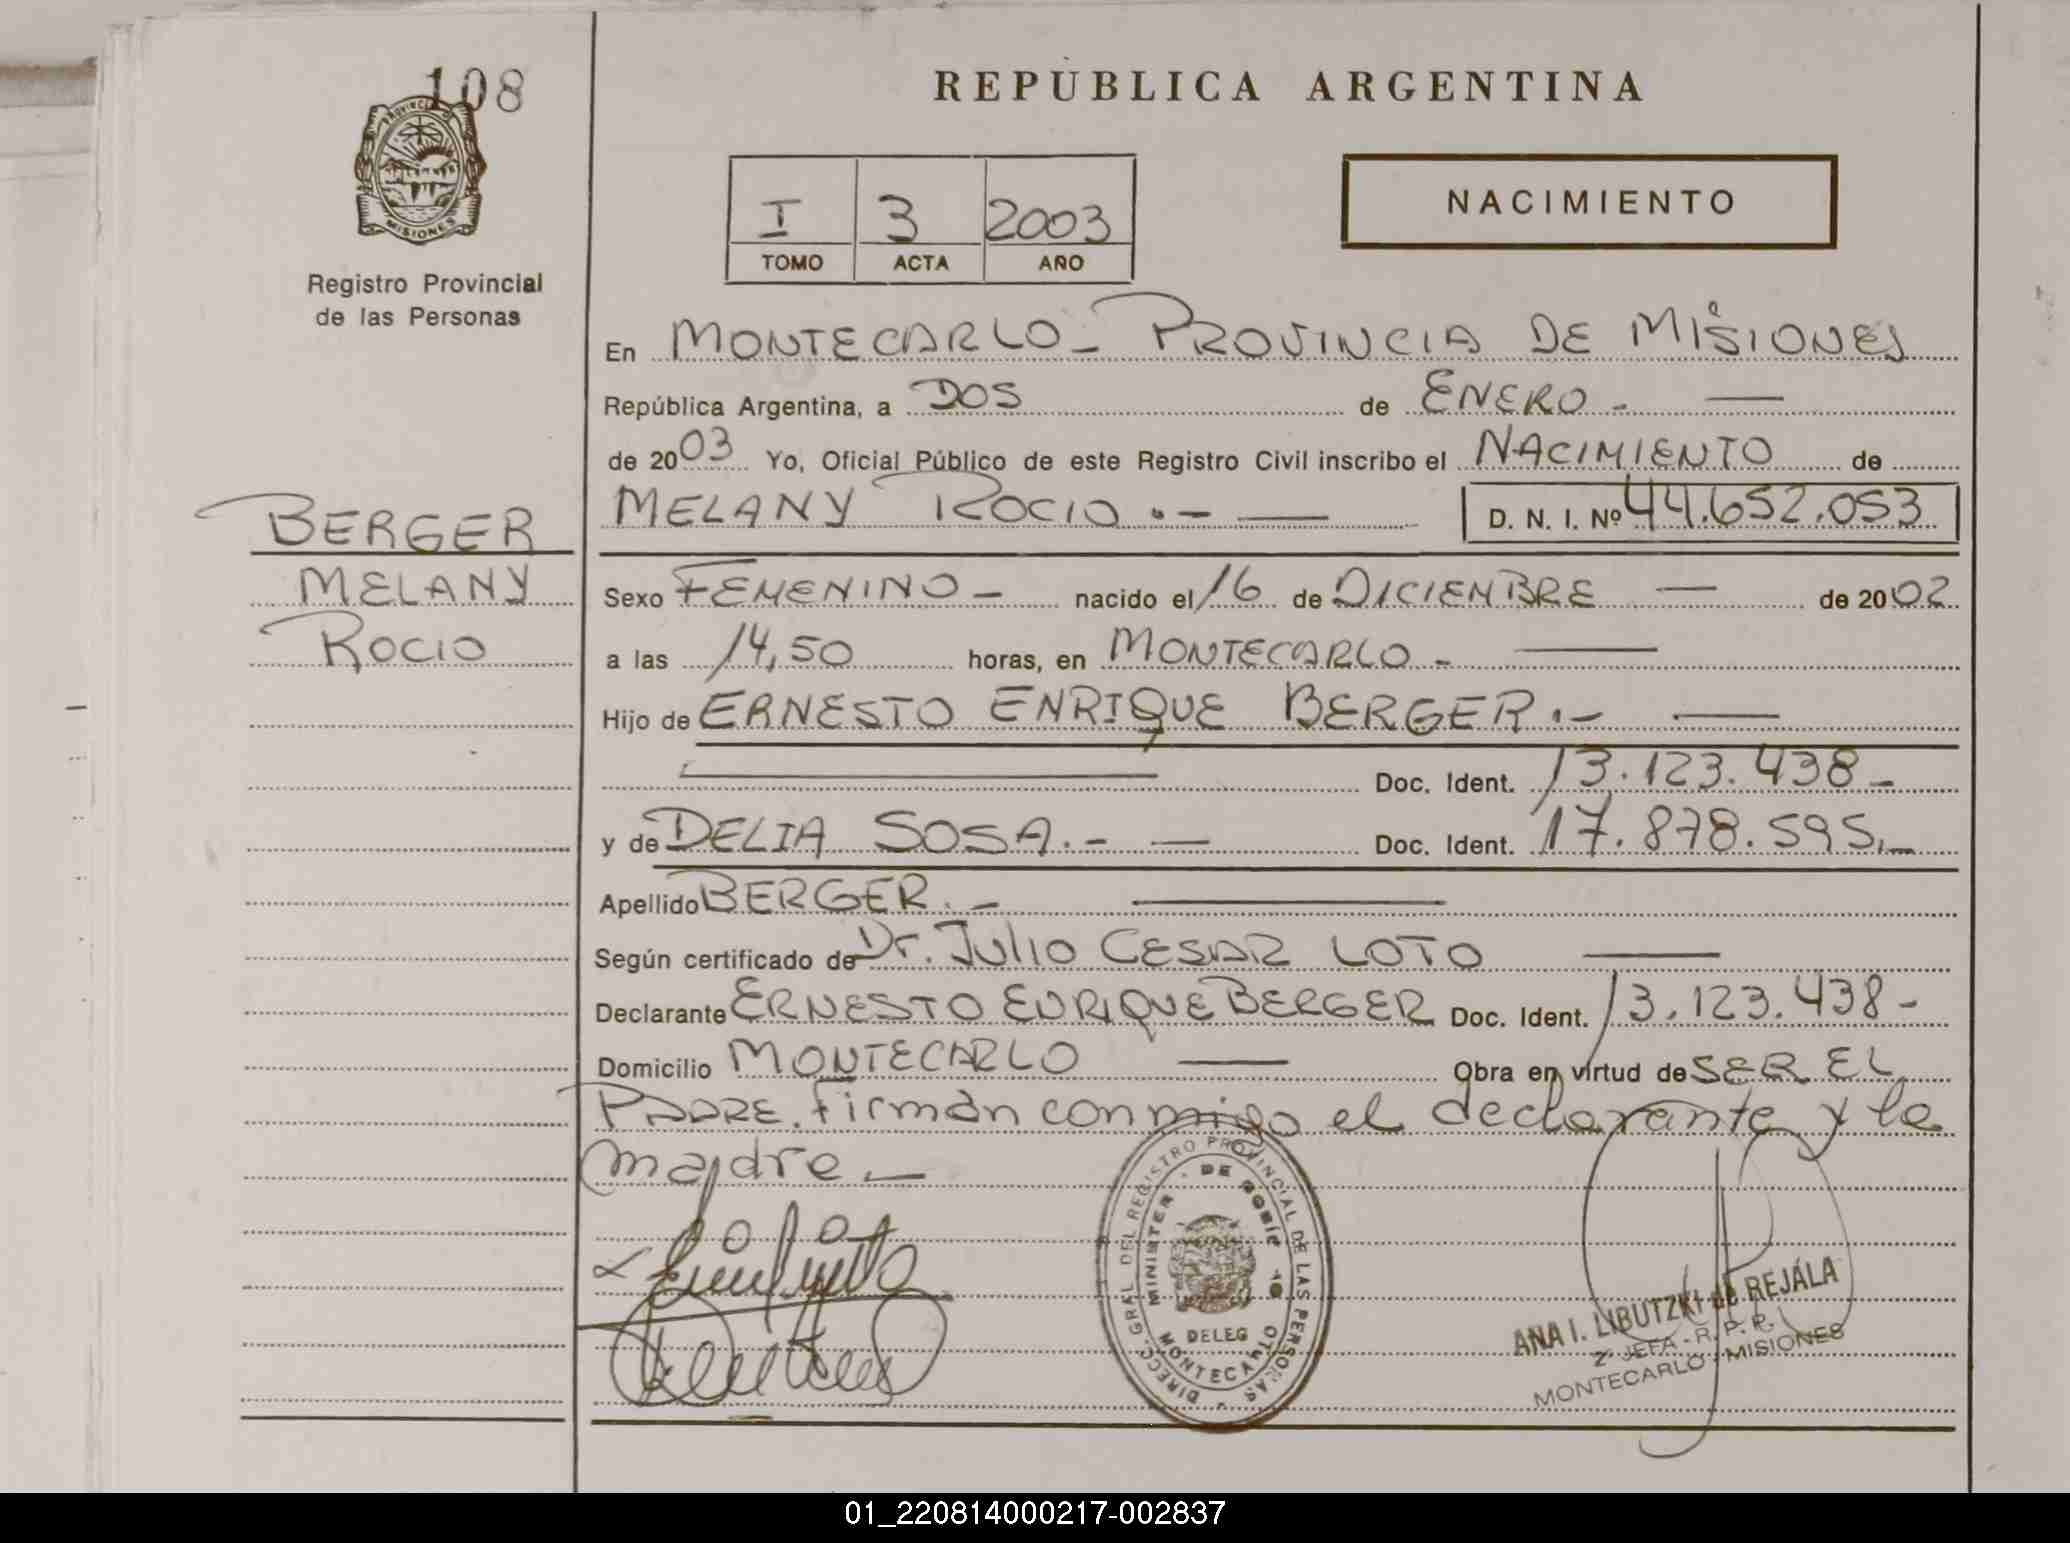 108
PROVINCIA DE
MISIONES
Registro Provincial
de las Personas
REPUBLICA ARGENTINA
I 3 2003
TOMO ACTA AÑO
NACIMIENTO
En MONTECARLO - PROVINCIA DE MISIONES
República Argentina, a DOS de ENERO - —
de 2003 Yo, Oficial Público de este Registro Civil inscribo el NACIMIENTO de
MELANY ROCIO .- — D. N. I. Nº 44.652.053
BERGER
MELANY
ROCIO
Sexo FEMENINO - nacido el 16 de DICIEMBRE — de 2002
a las 14,50 horas, en MONTECARLO - —
Hijo de ERNESTO ENRIQUE BERGER .- —
Doc. Ident. 13.123.438-
y de DELIA SOSA.- — Doc. Ident. 17.878.595.-
Apellido BERGER. - —
Según certificado de Dr. JULIO CESAR LOTO —
Declarante ERNESTO ENRIQUE BERGER Doc. Ident. 13.123.438-
Domicilio MONTECARLO — Obra en virtud de SER EL
PADRE. Firman conmigo el declarante y la
madre. —
DIRECC. GRAL. DEL REGISTRO PROVINCIAL DE LAS PERSONAS
MINISTER. DE GOBIE
DELEG
MONTECARLO
ANA I. LIBUTZKI de REJALA
2º JEFA - R. P. P.
MONTECARLO - MISIONES
01_220814000217-002837